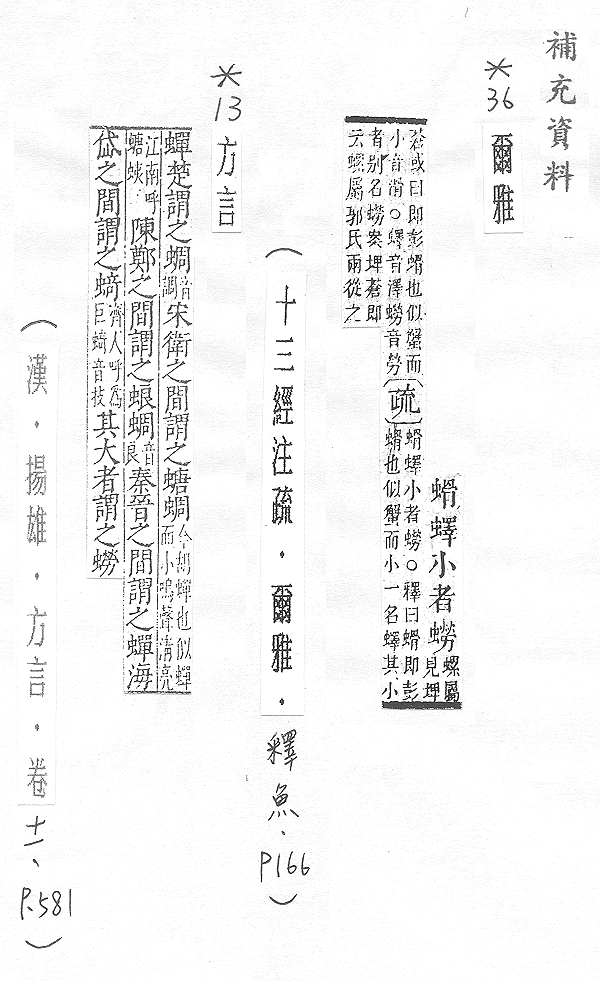 補充資料
*36 爾雅
螖蠌小者蟧螺屬見埤
蒼或曰即彭螖也似蟹而小音滑○蠌音澤蟧音勞〔疏〕螖蠌小者蟧○釋曰螖即彭螖也似蟹而小一名蠌其小
者別名蟧案埤蒼即云螺屬郭氏兩從之
(十三經注疏·爾雅·釋魚·P166)
*13 方言
蟬楚謂之蜩音調宋衛之間謂之螗蜩今胡蟬也似蟬而小鳴聲清亮
江南呼螗蛦陳鄭之間謂之蜋蜩音良秦晉之間謂之蟬海
岱之間謂之䗁齊人呼為巨䗁音技其大者謂之蟧
(漢·揚雄·方言·卷十一、P.581)